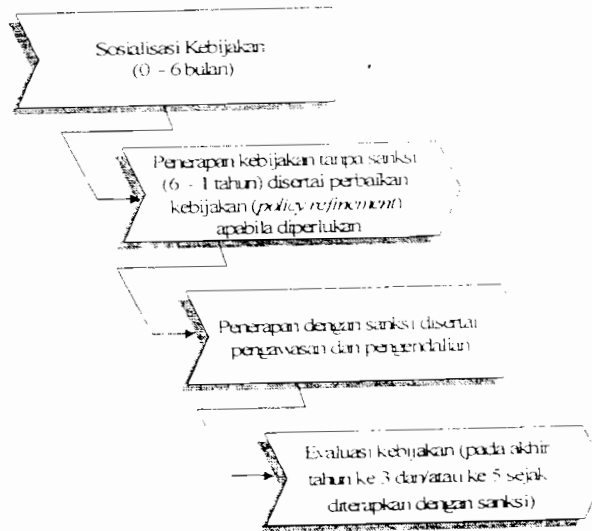 Sosialisasi Kebijakan
(0 - 6 bulan)
Penerapan kebijakan tanpa sanksi
(6 - 1 tahun) disertai perbaikan
kebijakan (policy refinement)
apabila diperlukan
Penerapan dengan sanksi disertai
pengawasan dan pengendalian
Evaluasi kebijakan (pada akhir
tahun ke 3 dan/atau ke 5 sejak
diterapkan dengan sanksi)